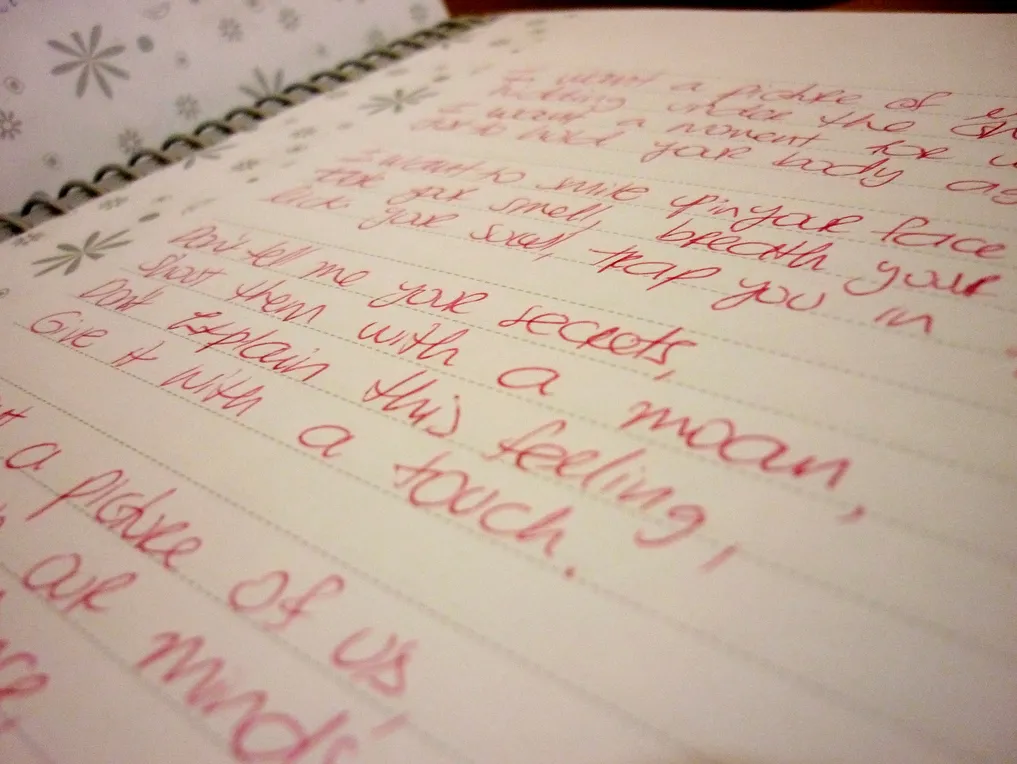 I want a picture of
under the
I want a moment for
to hold your body
I want to smile your face
for your smell, breath your
lick your soul, trap you in
Don't tell me your secrets,
Shout them with a moan,
Dont Explain this feeling,
Give it with a touch.
a picture of us,
our minds